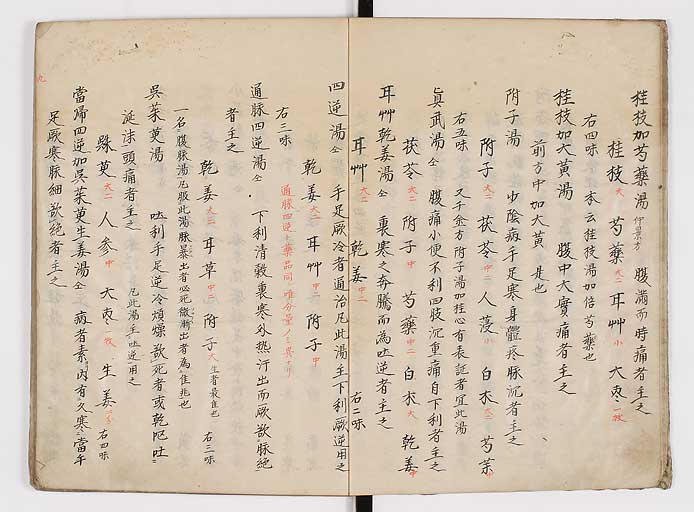 桂枝加芍藥湯 仲景方 腹滿而時痛者主之
桂枝 大 芍藥 大二 耳艸 小 大枣 一枚
右四味 本云桂枝湯加倍芍藥也
桂枝加大黄湯 腹中大實痛者主之
前方中加大黄是也
附子湯 少陰病手足寒身體疼脉沉者主之
附子 大二 茯苓 中二 人蓡 小 白朮 大二 芍藥 中
右五味 又千金方附子湯加桂心有表証者宜此湯
眞武湯 仝 腹痛小便不利四肢沉重痛自下利者主之
茯苓 大二 附子 中 芍藥 中二 白朮 大 乾姜 中
耳艸乾姜湯 仝 裏寒之奔騰而為吐逆者主之
耳艸 大二 乾姜 中二 右二味
四逆湯 仝 手足厥冷者通治凡此湯主下利厥逆用之
乾姜 大二 耳艸 中二 附子 中
右三味 通脉四逆ト藥品同唯分量ノミ異ナリ
通脉四逆湯 仝 下利清穀裏寒外熱汗出而厥欲脉絶
者主之 乾姜 大二 耳草 中二 附子 大 生者最佳也 右三味
一名復脉湯凡服此湯脉暴出者必死微漸出者為佳兆也
吳茱萸湯 吐利手足逆冷煩燥欲死者或乾呕吐
涎沫頭痛者主之 凡此湯手吐逆用之
殊萸 大二 人参 中 大枣 一枚 生姜 右四味
當帰四逆加吳茱萸生姜湯 仝 病者素内有久寒當年
足厥寒脉細欲絶者主之
九